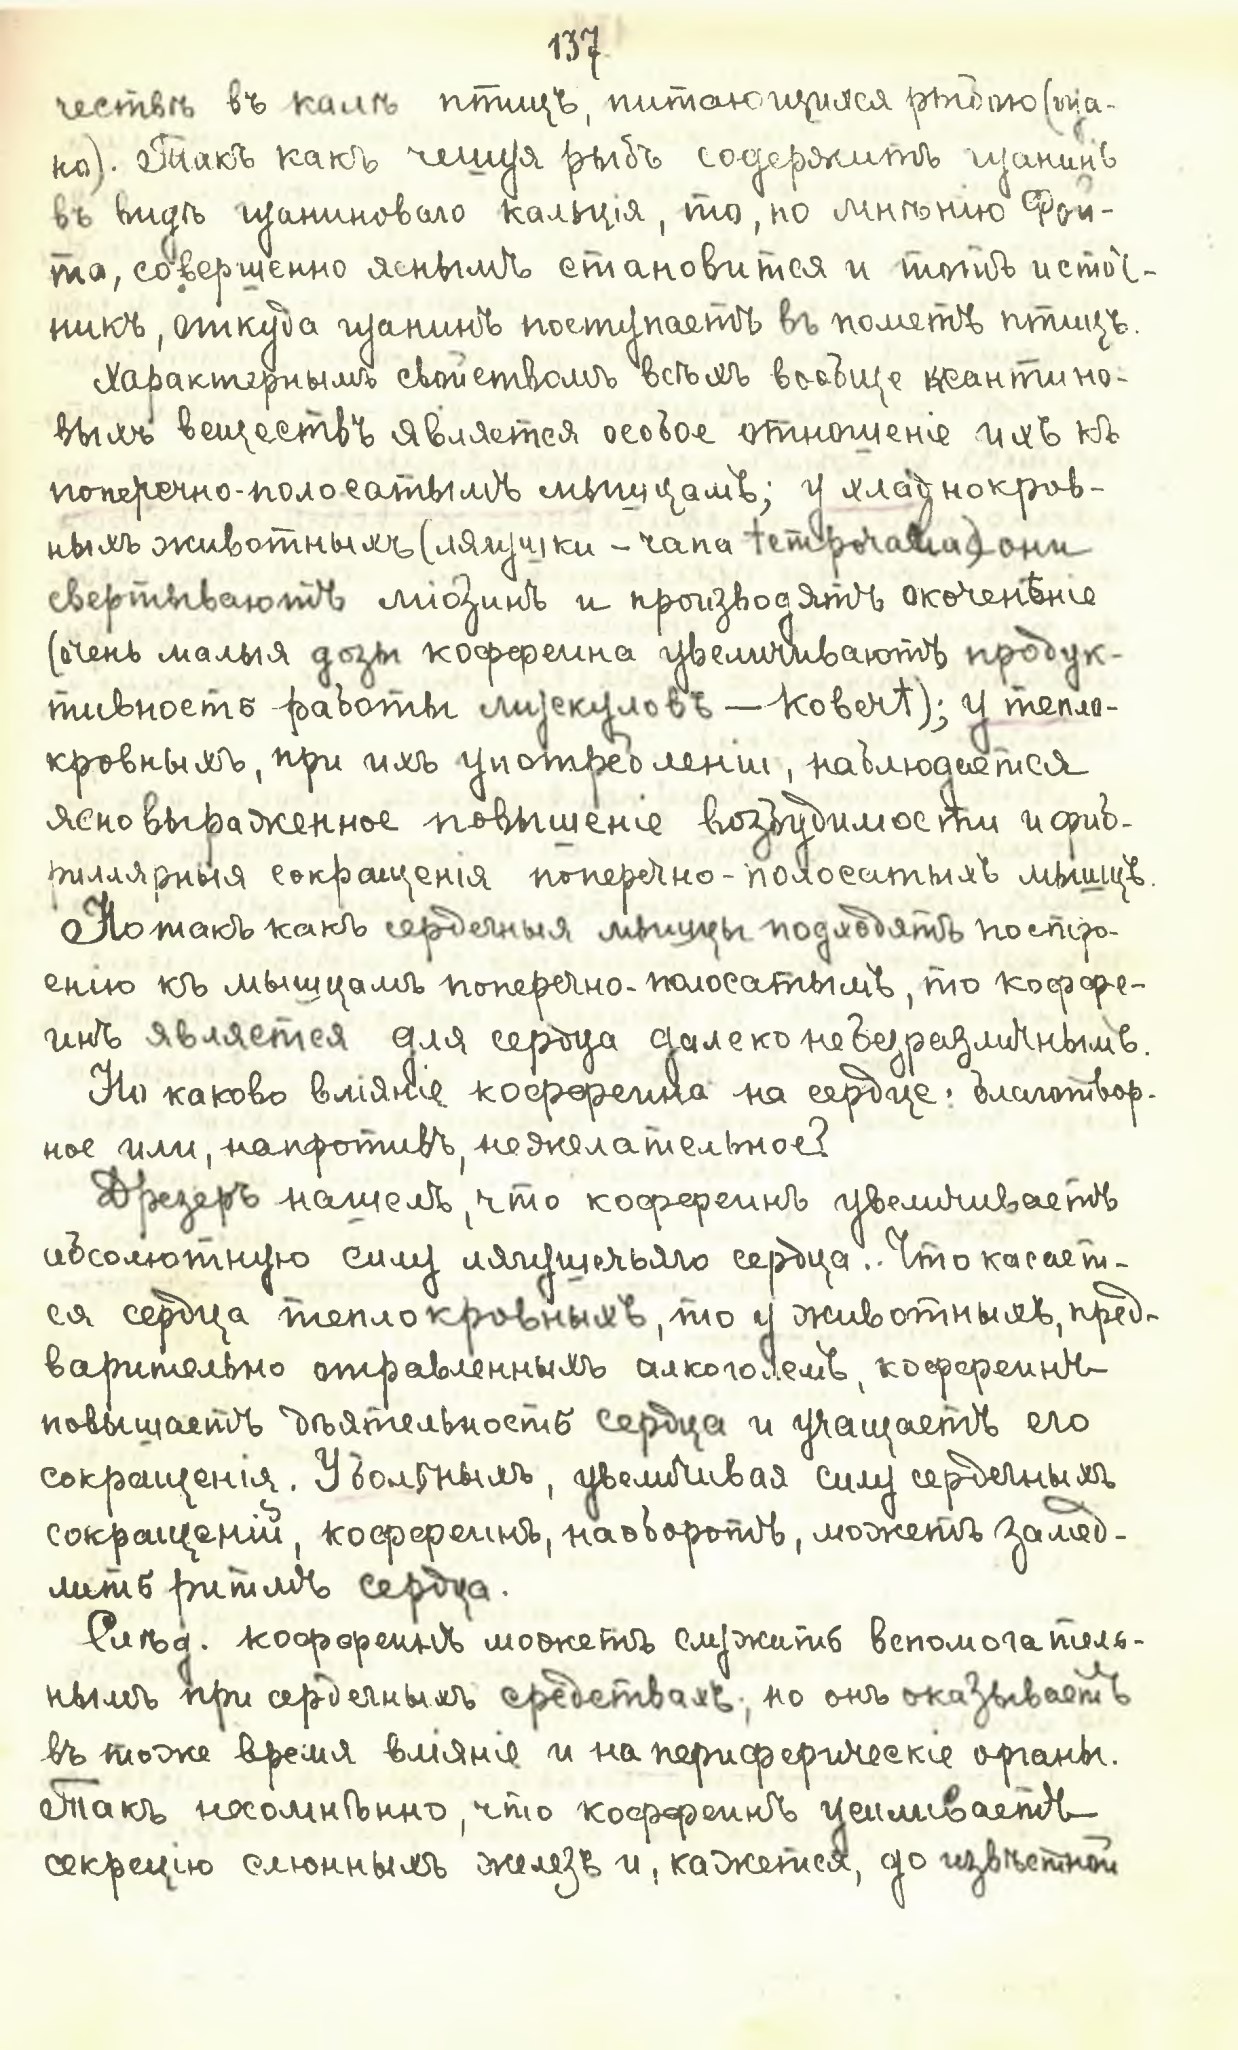 137
чествѣ въ калѣ птицъ, питающихся рыбою (гуа-
но). Такъ какъ чешуя рыбъ содержитъ гуанинъ
въ видѣ гуаниноваго кальція, то, по мнѣнію Фой-
та, совершенно яснымъ становится и тотъ источ-
никъ, откуда гуанинъ поступаетъ въ пометъ птицъ.
Характернымъ свойствомъ всѣхъ вообще ксантино-
выхъ веществъ является особое отношеніе ихъ къ
поперечно-полосатымъ мышцамъ; у хладнокров-
ныхъ животныхъ (лягушки – rana temporaria) они
свертываютъ міозинъ и производятъ окоченѣніе
(очень малыя дозы коффеина увеличиваютъ продук-
тивность работы мускуловъ — Kobert); у тепло-
кровныхъ, при ихъ употребленіи, наблюдается
ясно выраженное повышеніе возбудимости и фиб-
риллярныя сокращенія поперечно-полосатыхъ мышцъ.
Но такъ какъ сердечныя мышцы подходятъ по стро-
енію къ мышцамъ поперечно-полосатымъ, то коффе-
инъ является для сердца далеко небезразличнымъ.
Но каково вліяніе коффеина на сердце: благотвор-
ное или, напротивъ, нежелательное?
Дрезеръ нашелъ, что коффеинъ увеличиваетъ
абсолютную силу лягушечьяго сердца. Что касает-
ся сердца теплокровныхъ, то у животныхъ, пред-
варительно отравленныхъ алкоголемъ, коффеинъ
повышаетъ дѣятельность сердца и учащаетъ его
сокращенія. У больныхъ, увеличивая силу сердечныхъ
сокращеній, коффеинъ, наоборотъ, можетъ замед-
лить ритмъ сердца.
Слѣд. коффеинъ можетъ служить вспомогатель-
нымъ при сердечныхъ средствахъ, но онъ оказываетъ
въ тоже время вліяніе и на периферическіе органы.
Такъ несомнѣнно, что коффеинъ усиливаетъ
секрецію слюнныхъ железъ и, кажется, до извѣстной